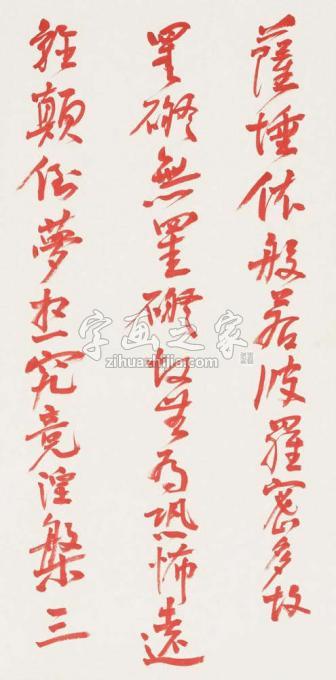 薩埵依般若波羅密多故
罣礙無罣礙故无有恐怖遠
離顛倒夢想究竟涅槃三
字画之家
zihuazhijia.com